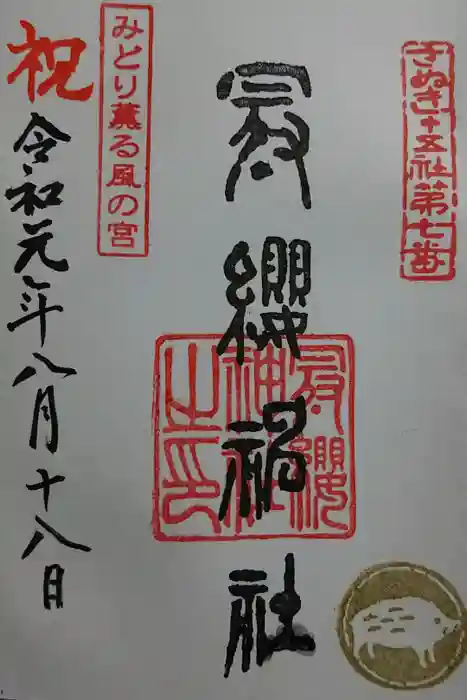 さぬき十五社第七番
冠纓神社
冠纓
神社
之印
みどり薫る風の宮
祝
令和元年八月十八日